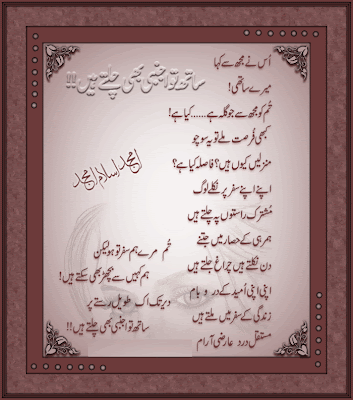 ساتھ تو اجنبی بھی چلتے ہیں!!
اُس نے مجھ سے کہا
میرے ساتھی!
تُم کو مجھ سے جو گلہ ہے......کیا ہے!
کبھی فُرصت ملے تو یہ سوچو
منزلیں کیوں ہیں؟ فاصلہ کیا ہے؟
اپنے اپنے سفر پر نکلے لوگ
مُشترک راستوں پہ چلتے ہیں
ہمرہی کے حصار میں جتنے
دن نکلتے ہیں چراغ جلتے ہیں
اپنی اپنی اُمید کے در و بام
زندگی کے سفر میں ملتے ہیں
مستقل درد عارضی آرام
تُم مرے ہم سفر تو ہو لیکن
ہم کہیں سے بچھڑ بھی سکتے ہیں!
دیر تک اک طویل رستے پر
ساتھ تو اجنبی بھی چلتے ہیں!!
امجد اسلام امجد